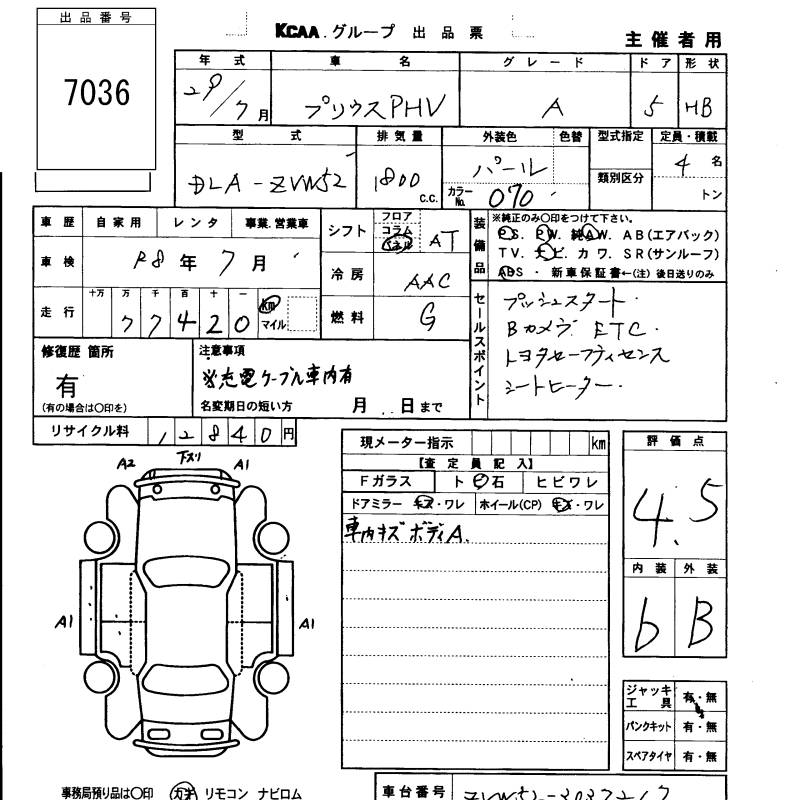 出品番号
7036
KCAA.グループ 出品票
主催者用
年式 車名 グレード ドア 形状
29/7月 プリウスPHV A 5 HB
型式 排気量 外装色 色替 型式指定 定員・積載
DLA-ZVW52 1800 c.c. パール カラーNo. 070 類別区分 4名 トン
車歴 自家用 レンタ 事業.営業車
車検 R8年7月
走行 十万 万 千 百 十 一
77420 km マイル
シフト フロア コラム パネル AT
冷房 AAC
燃料 G
装備品
※純正のみ○印をつけて下さい。
PS. PW. 純AW. AB(エアバック)
TV. ナビ. カワ. SR(サンルーフ)
ABS ・ 新車保証書←(注)後日送りのみ
セールスポイント
プッシュスタート・
Bカメラ. ETC・
トヨタセーフティセンス
シートヒーター・
修復歴 箇所
有
(有の場合は○印を)
注意事項
※充電ケーブル車内有
名変期日の短い方 月 日まで
リサイクル料 12840円
現メーター指示 km
【査定員記入】
Fガラス ト 石 ヒビワレ
ドアミラー キズ・ワレ ホイール(CP) キズ・ワレ
車内キズ ボディA.
評価点
4.5
内装 外装
b B
A2 下スリ A1
A1 A1
ジャッキ工具 有・無
パンクキット 有・無
スペアタイヤ 有・無
事務局預り品は○印 カギ リモコン ナビロム
車台番号